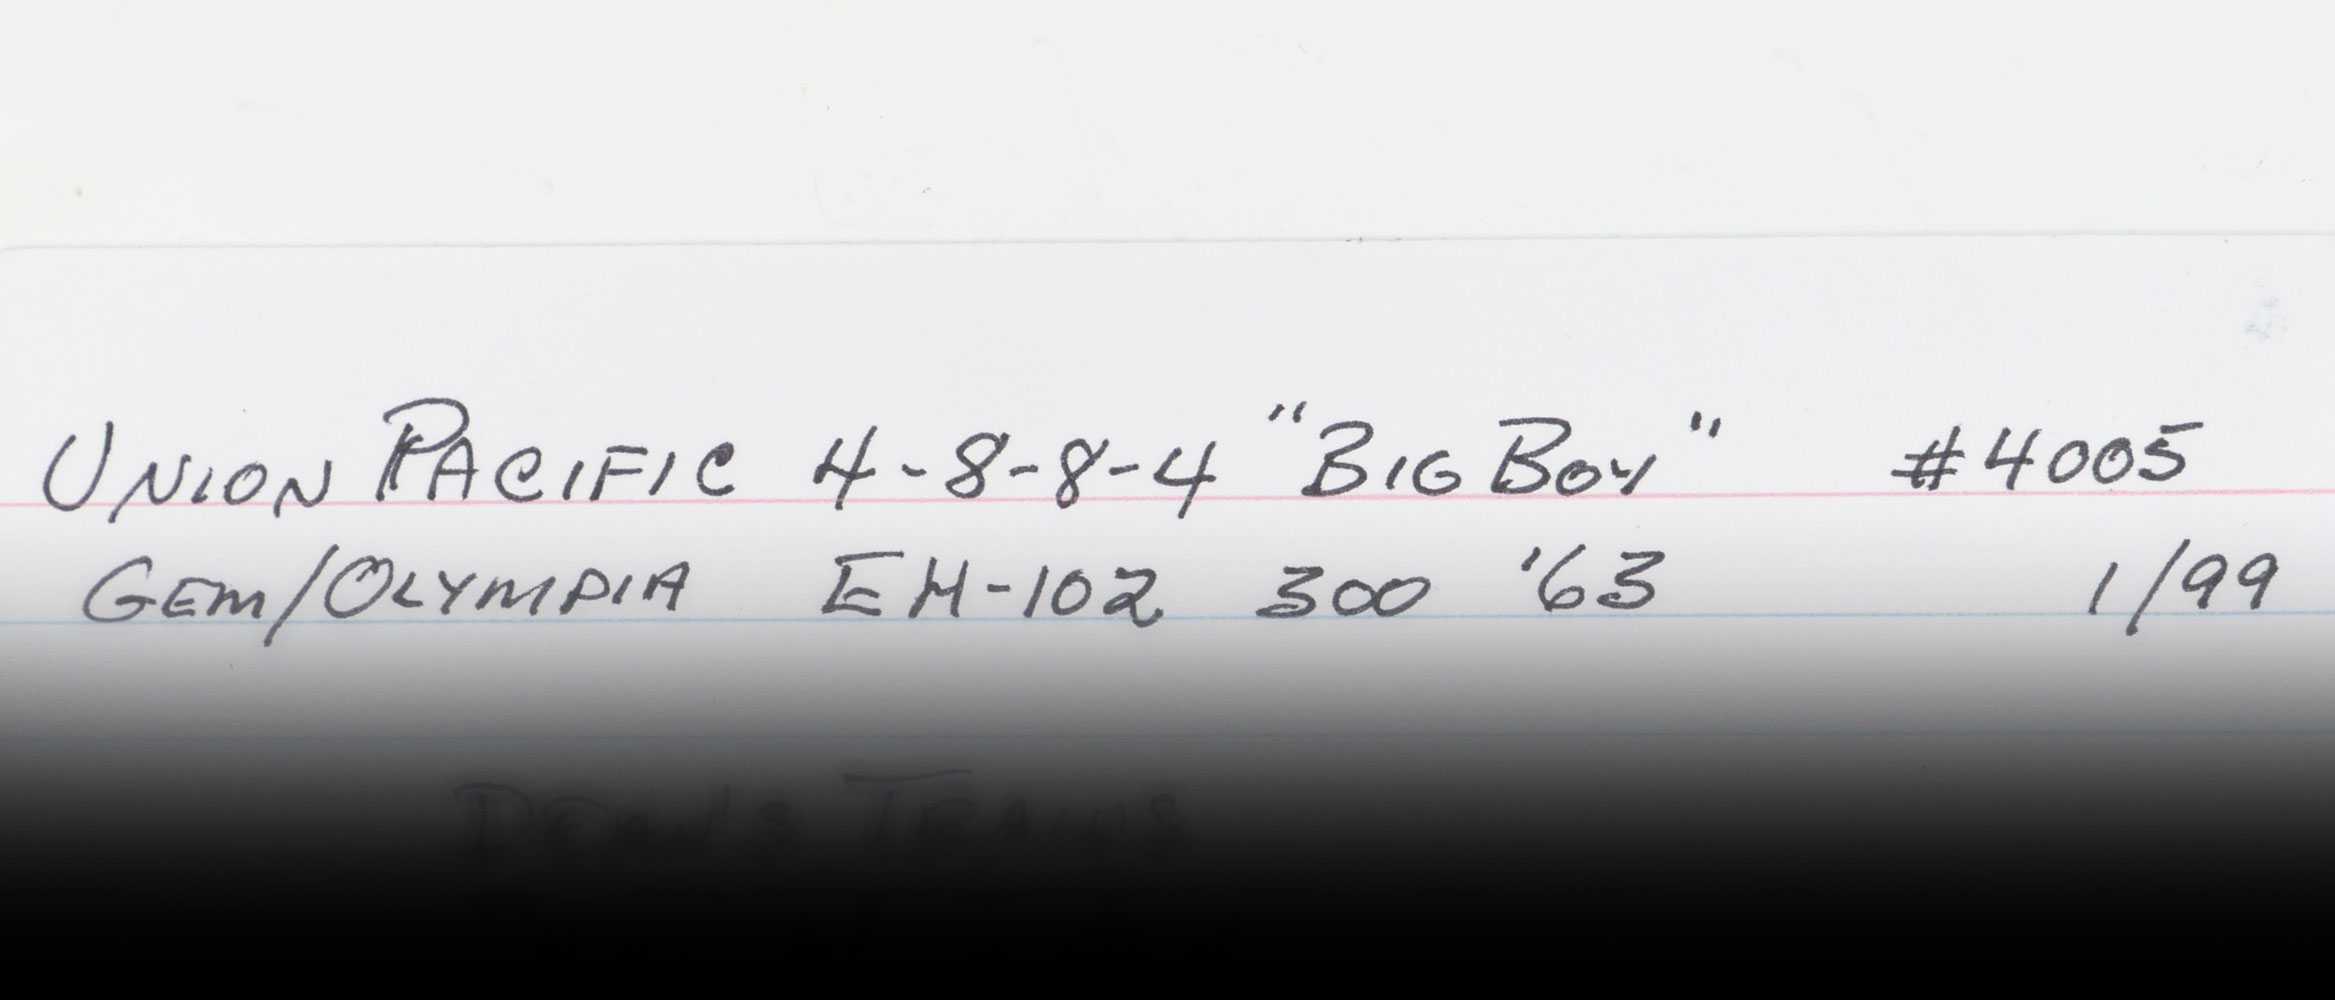 UNION PACIFIC 4-8-8-4 "BIG BOY" #4005
GEM/OLYMPIA EH-102 300 '63 1/99
DEAN'S TRAINS